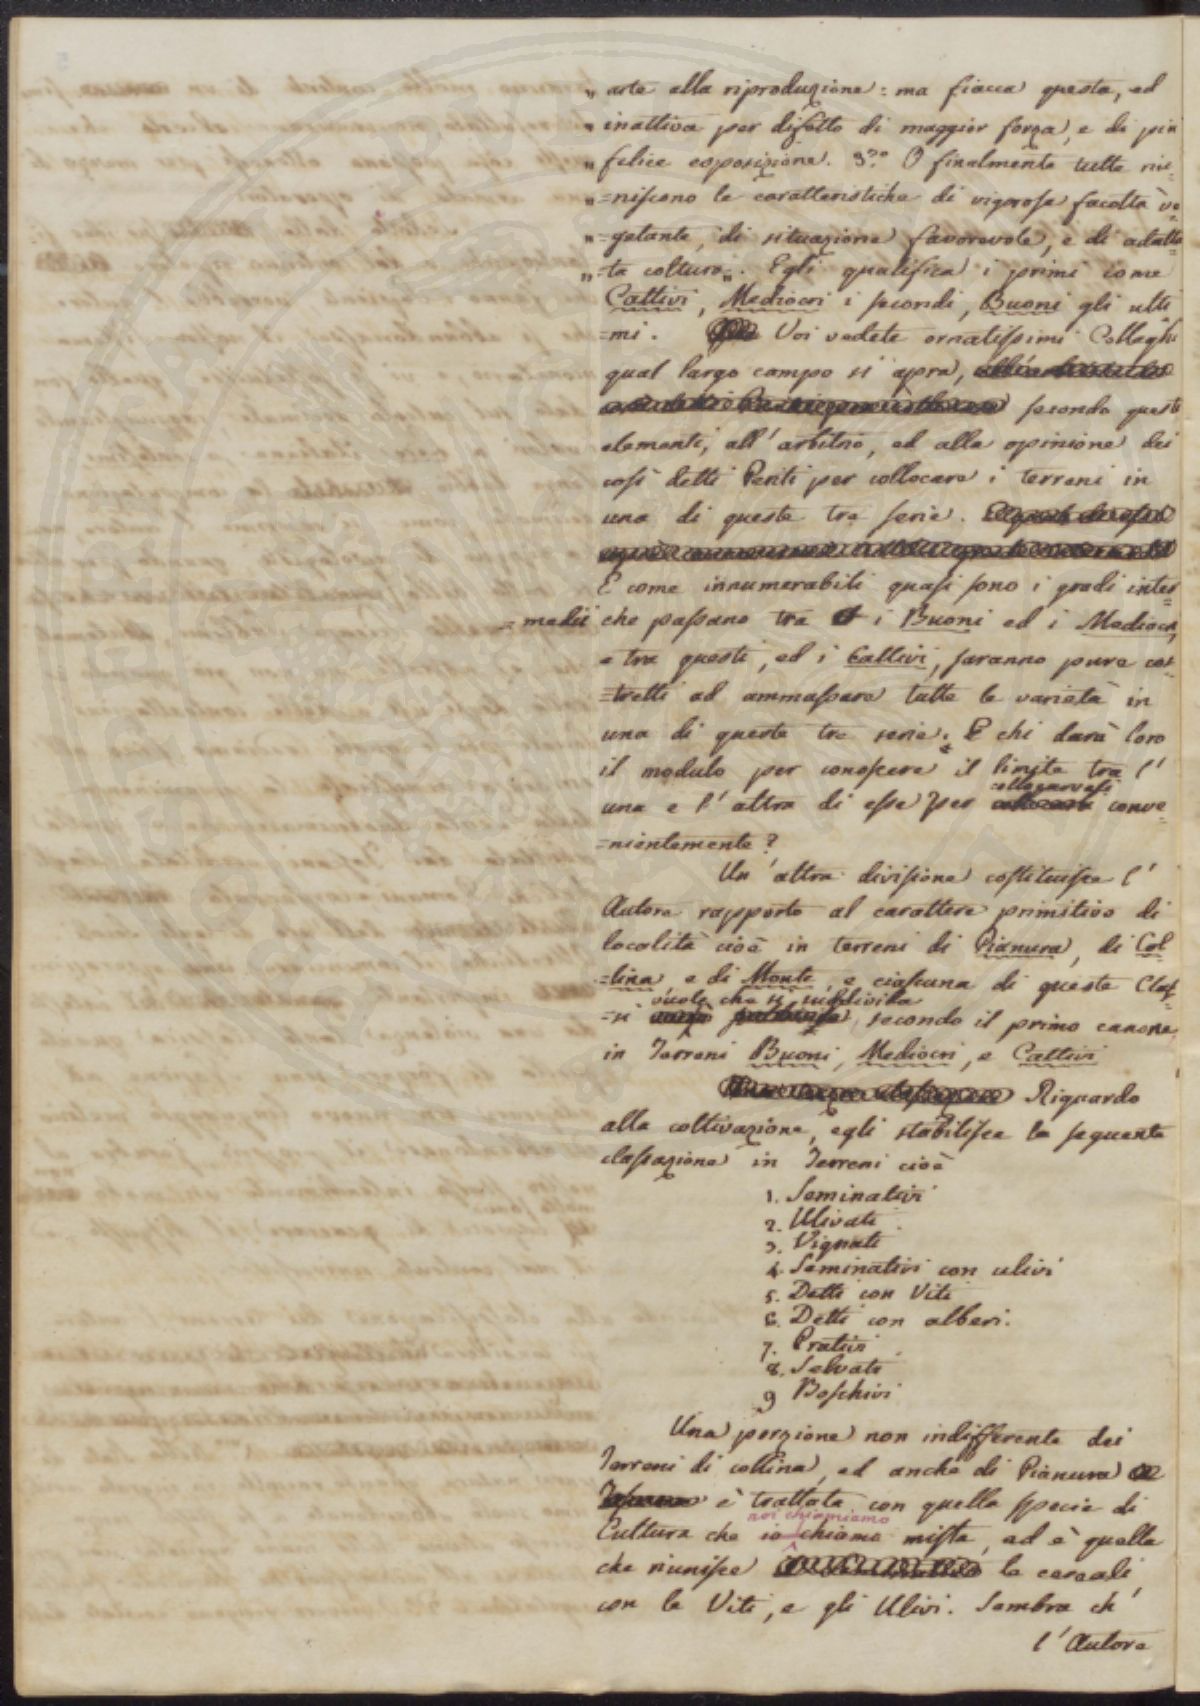 „ arte alla riproduzione: ma fiacca questa, ed
„ inattiva per difetto di maggior forza, e di più
„ felice esposizione. 3.º O finalmente tutte riu=
„ =niscono le caratteristiche di vigorosa facoltà ve=
„ =getante, di situazione favorevole, e di adatta
„ =ta coltura„. Egli qualifica i primi come
Cattivi, Mediocri i secondi, Buoni gli ulti
=mi. Voi vedete ornatissimi Colleghi
qual largo campo si apra, secondo questi
elementi, all'arbitrio, ed alla opinione dei
così detti Periti per collocare i terreni in
una di queste tre serie.
E come innumerabili quasi sono i gradi inter=
=medii che passano tra i Buoni ed i Mediocri,
e tra questi, ed i Cattivi, saranno pure cos=
=tretti ad ammassare tutte le varietà in
una di queste tre serie. E chi darà loro
il modulo per conoscere il limite tra l'
una e l'altra di esse per collocarvesi conve=
=nientemente?
Un'altra divisione costituisce l'
Autore rapporto al carattere primitivo di
località cioè in terreni di Pianura, di Col=
=lina, e di Monte, e ciascuna di queste Clas=
=si vuole che si suddivida secondo il primo canone
in Terreni Buoni, Mediocri, e Cattivi
Riguardo
alla coltivazione, egli stabilisce la seguente
classazione in Terreni cioè
1. Seminativi
2. Ulivati
3. Vignati
4. Seminativi con ulivi
5. Detti con Viti
6. Detti con alberi.
7. Prativi
8. Selvati
9 Boschivi
Una porzione non indifferente dei
Terreni di collina, ed anche di Pianura
è trattata con quella specie di
noi chiamiamo
Cultura che io chiamo mista, ed è quella
che riunisce le cereali,
con le Viti, e gli Ulivi. Sembra ch'
l'Autore